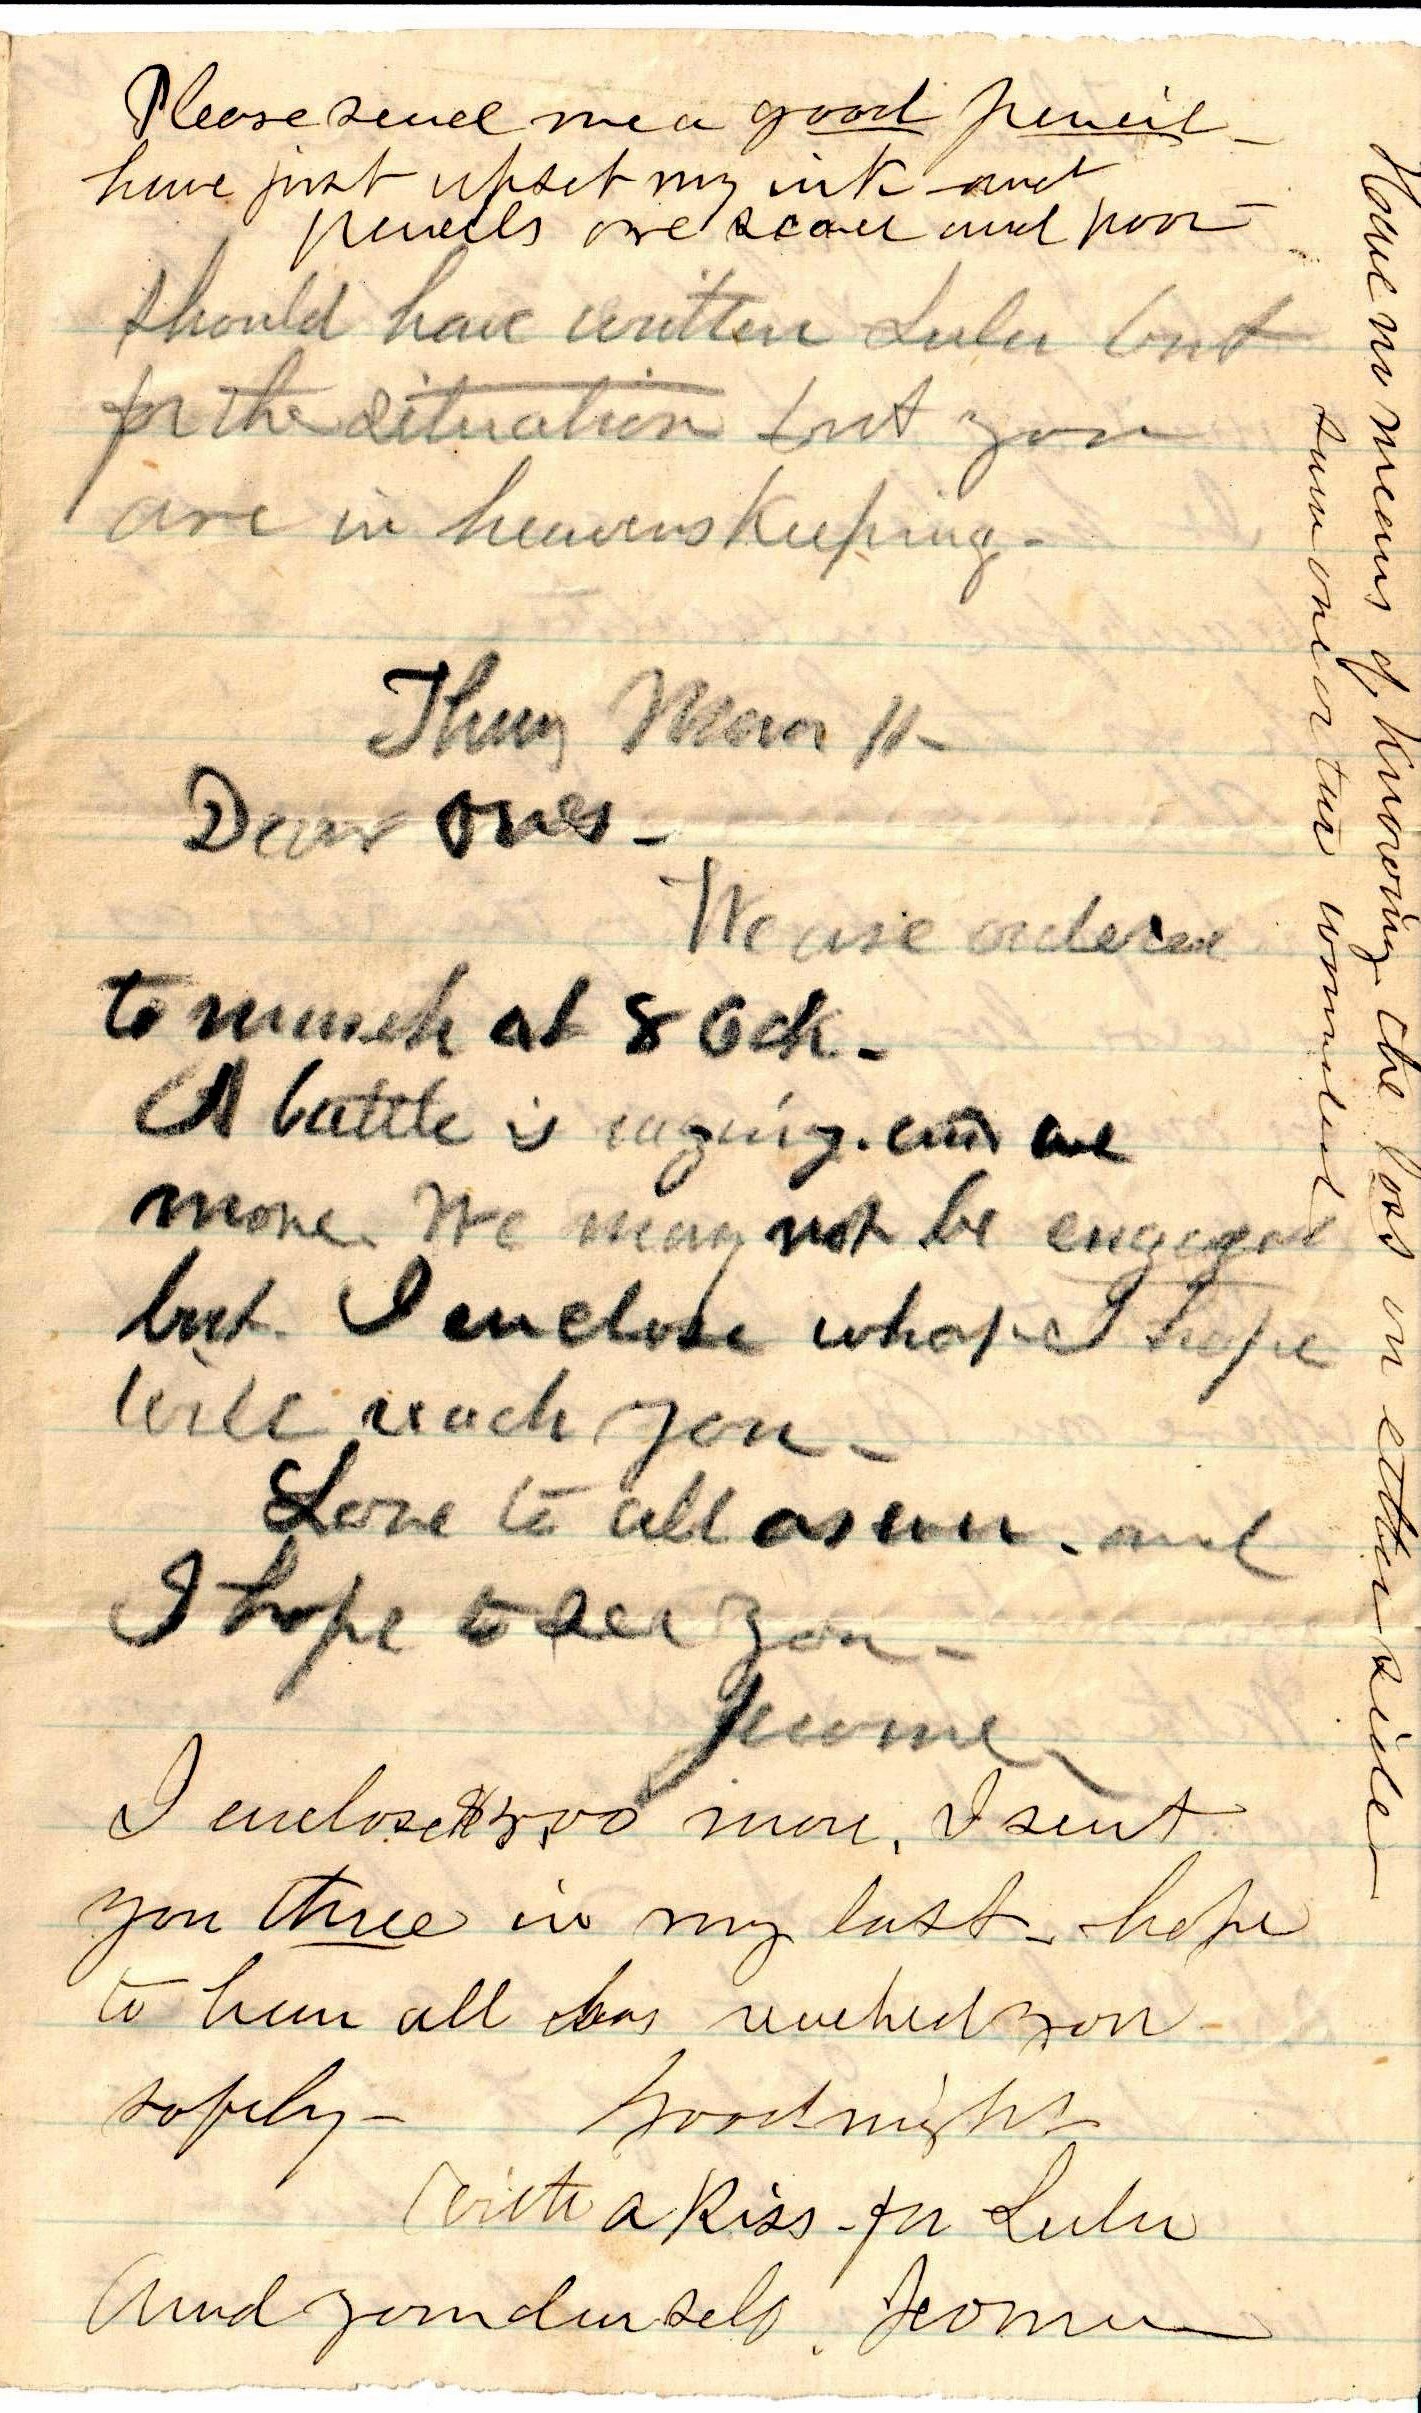 Please send me a good pencil -
have just upset my ink and
pencils are scarce and poor -
should have written Lulu but
for the situation but you
are in heavens keeping -
Thurs Morn 11 -
Dear ones -
We are ordered
to march at 8 Ock -
A battle is raging. and we
move. We may not be engaged
but I enclose what I hope
will reach you -
Love to all as ever - and
I hope to see you -
Jerome
I enclose $5.00 more, I sent
you three in my last - hope
to hear all has reached you
safely - Goodnight
with a kiss - for Lulu
And your dear self. Jerome
Have no means of knowing the loss on either side
some one or two wounded